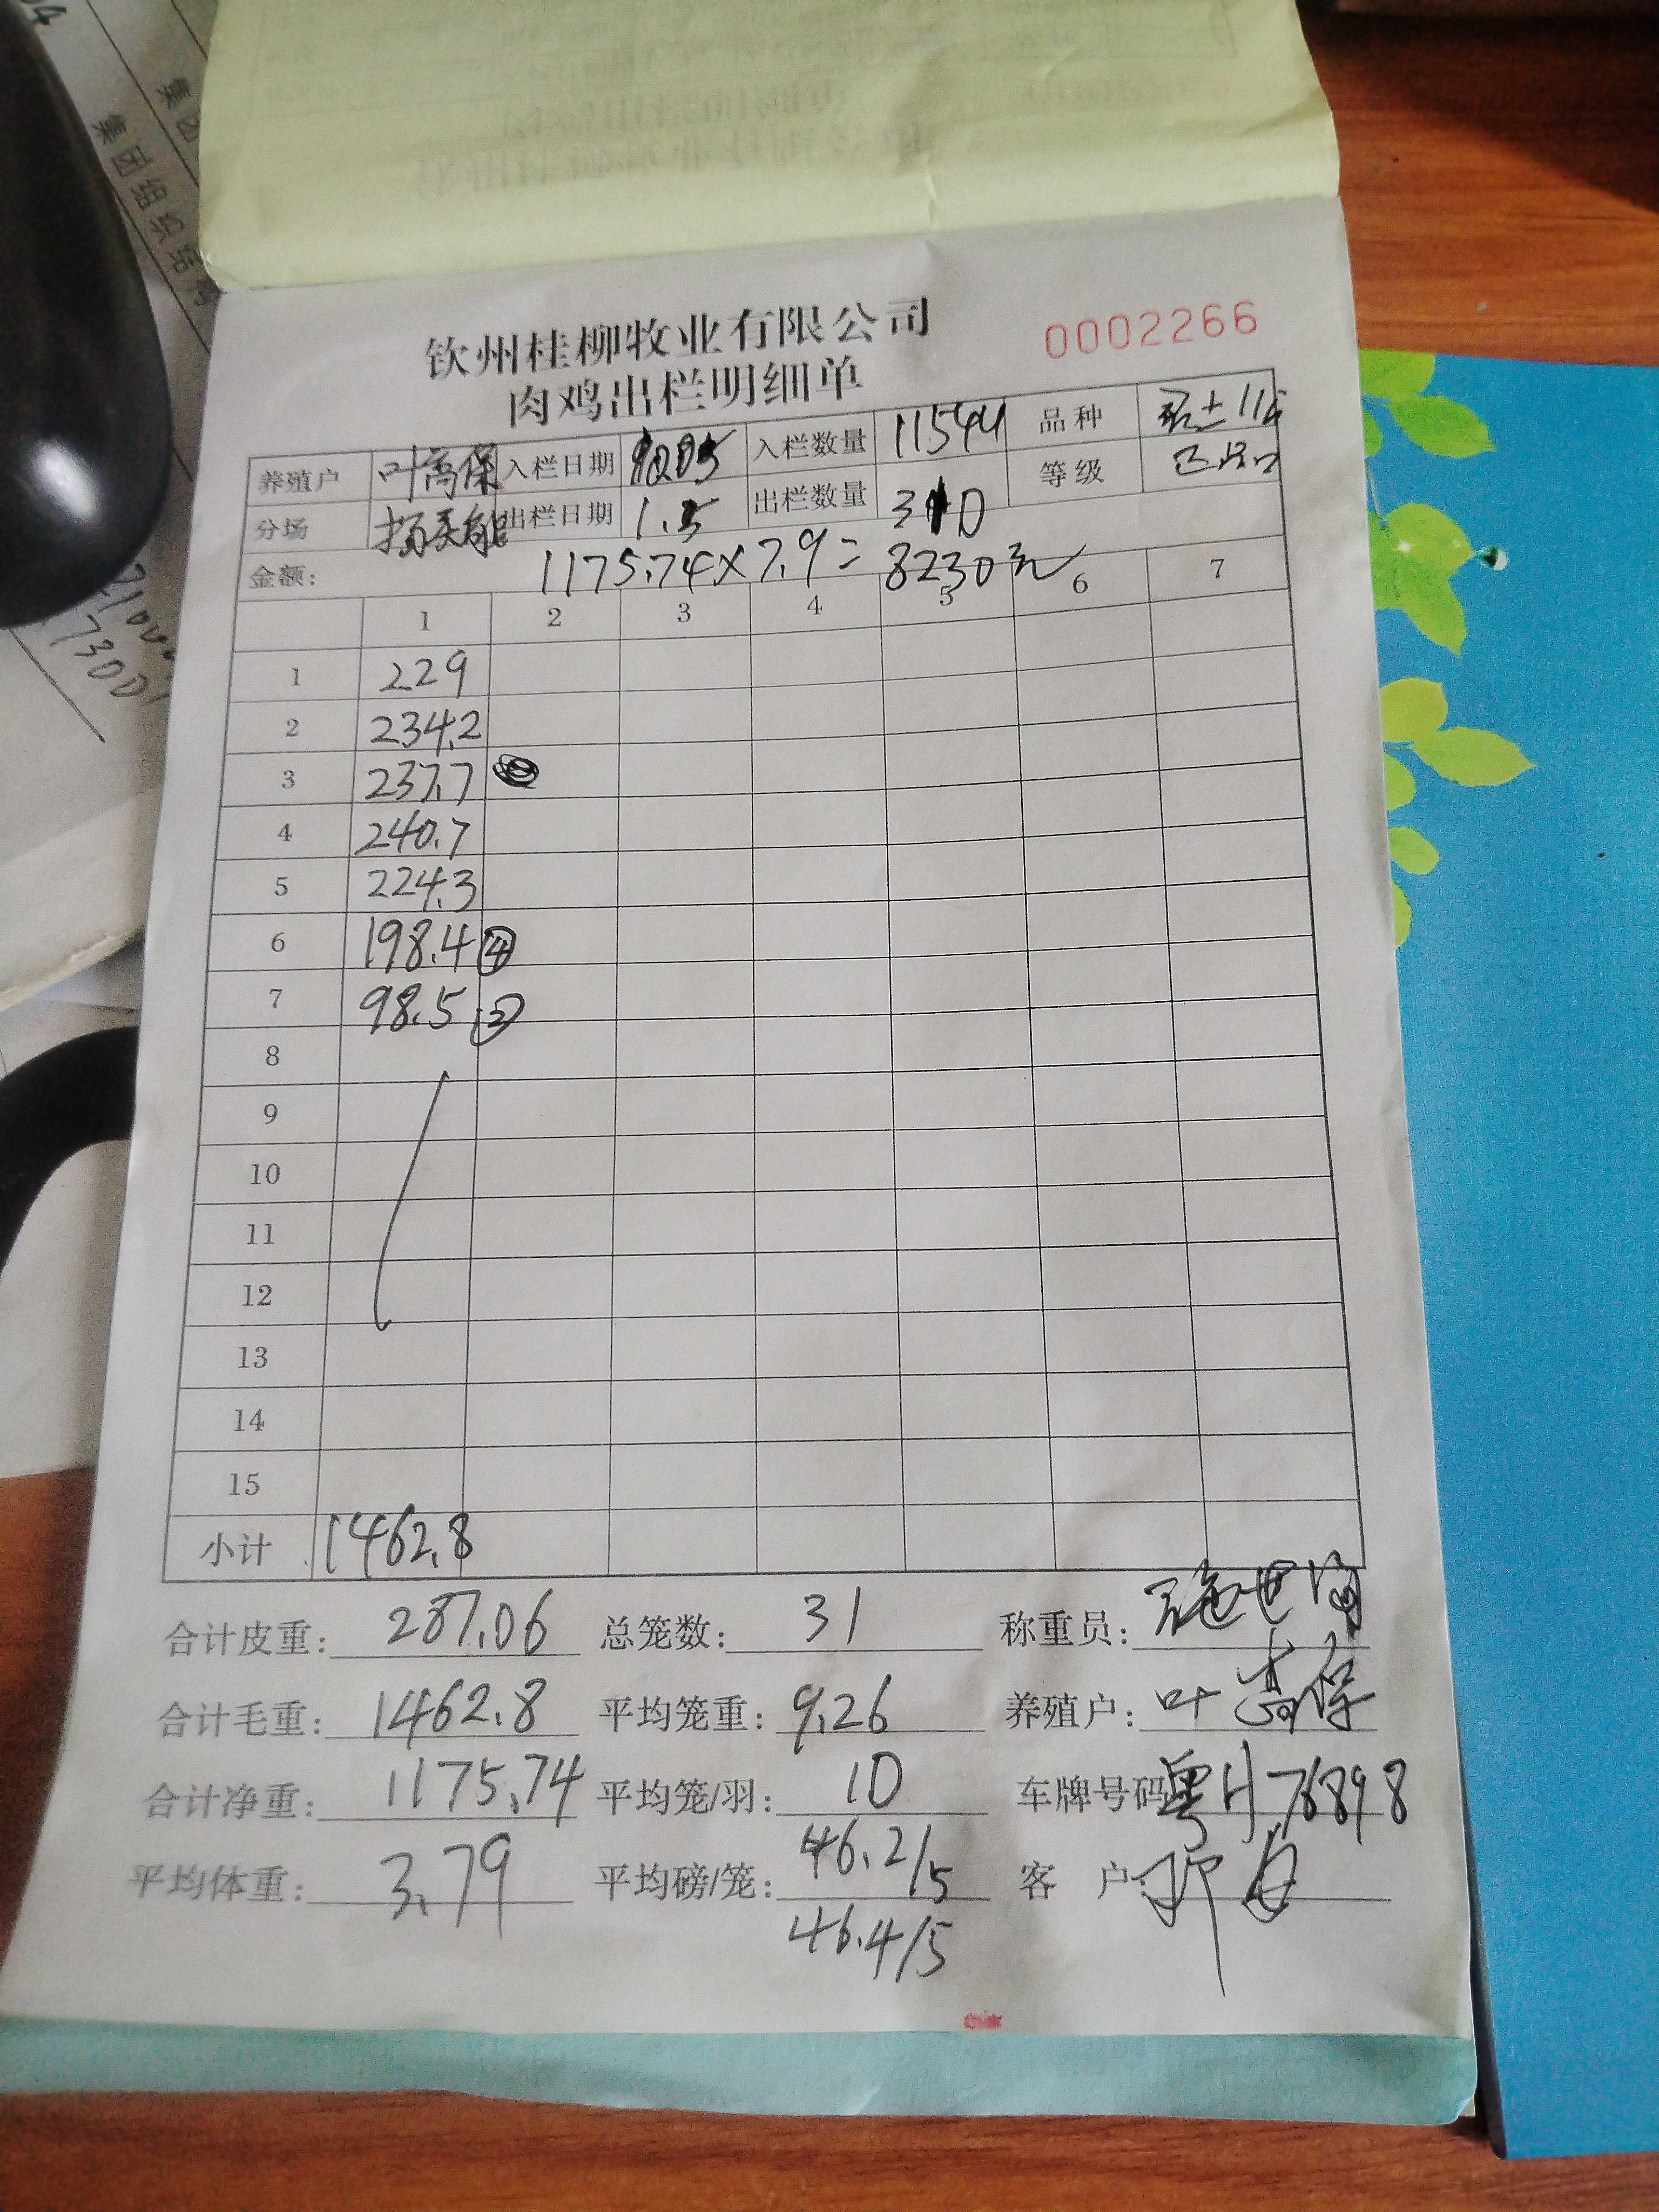 集团
集团组织结
73001
钦州桂柳牧业有限公司
0002266
肉鸡出栏明细单
养殖户 叶高保 入栏日期 入栏数量 11544 品种
分场 出栏日期 1.5 出栏数量 310 等级
金额: 1175.74×7.9=8230元
1 2 3 4 5 6 7
1 229
2 234.2
3 237.7
4 240.7
5 224.3
6 198.4 ④
7 98.5 ②
8
9
10
11
12
13
14
15
小计 1462.8
合计皮重: 287.06 总笼数: 31 称重员:
合计毛重: 1462.8 平均笼重: 9.26 养殖户: 叶高保
合计净重: 1175.74 平均笼/羽: 10 车牌号码 粤H76898
平均体重: 3.79 平均磅/笼: 46.2/5 客 户:
46.4/5